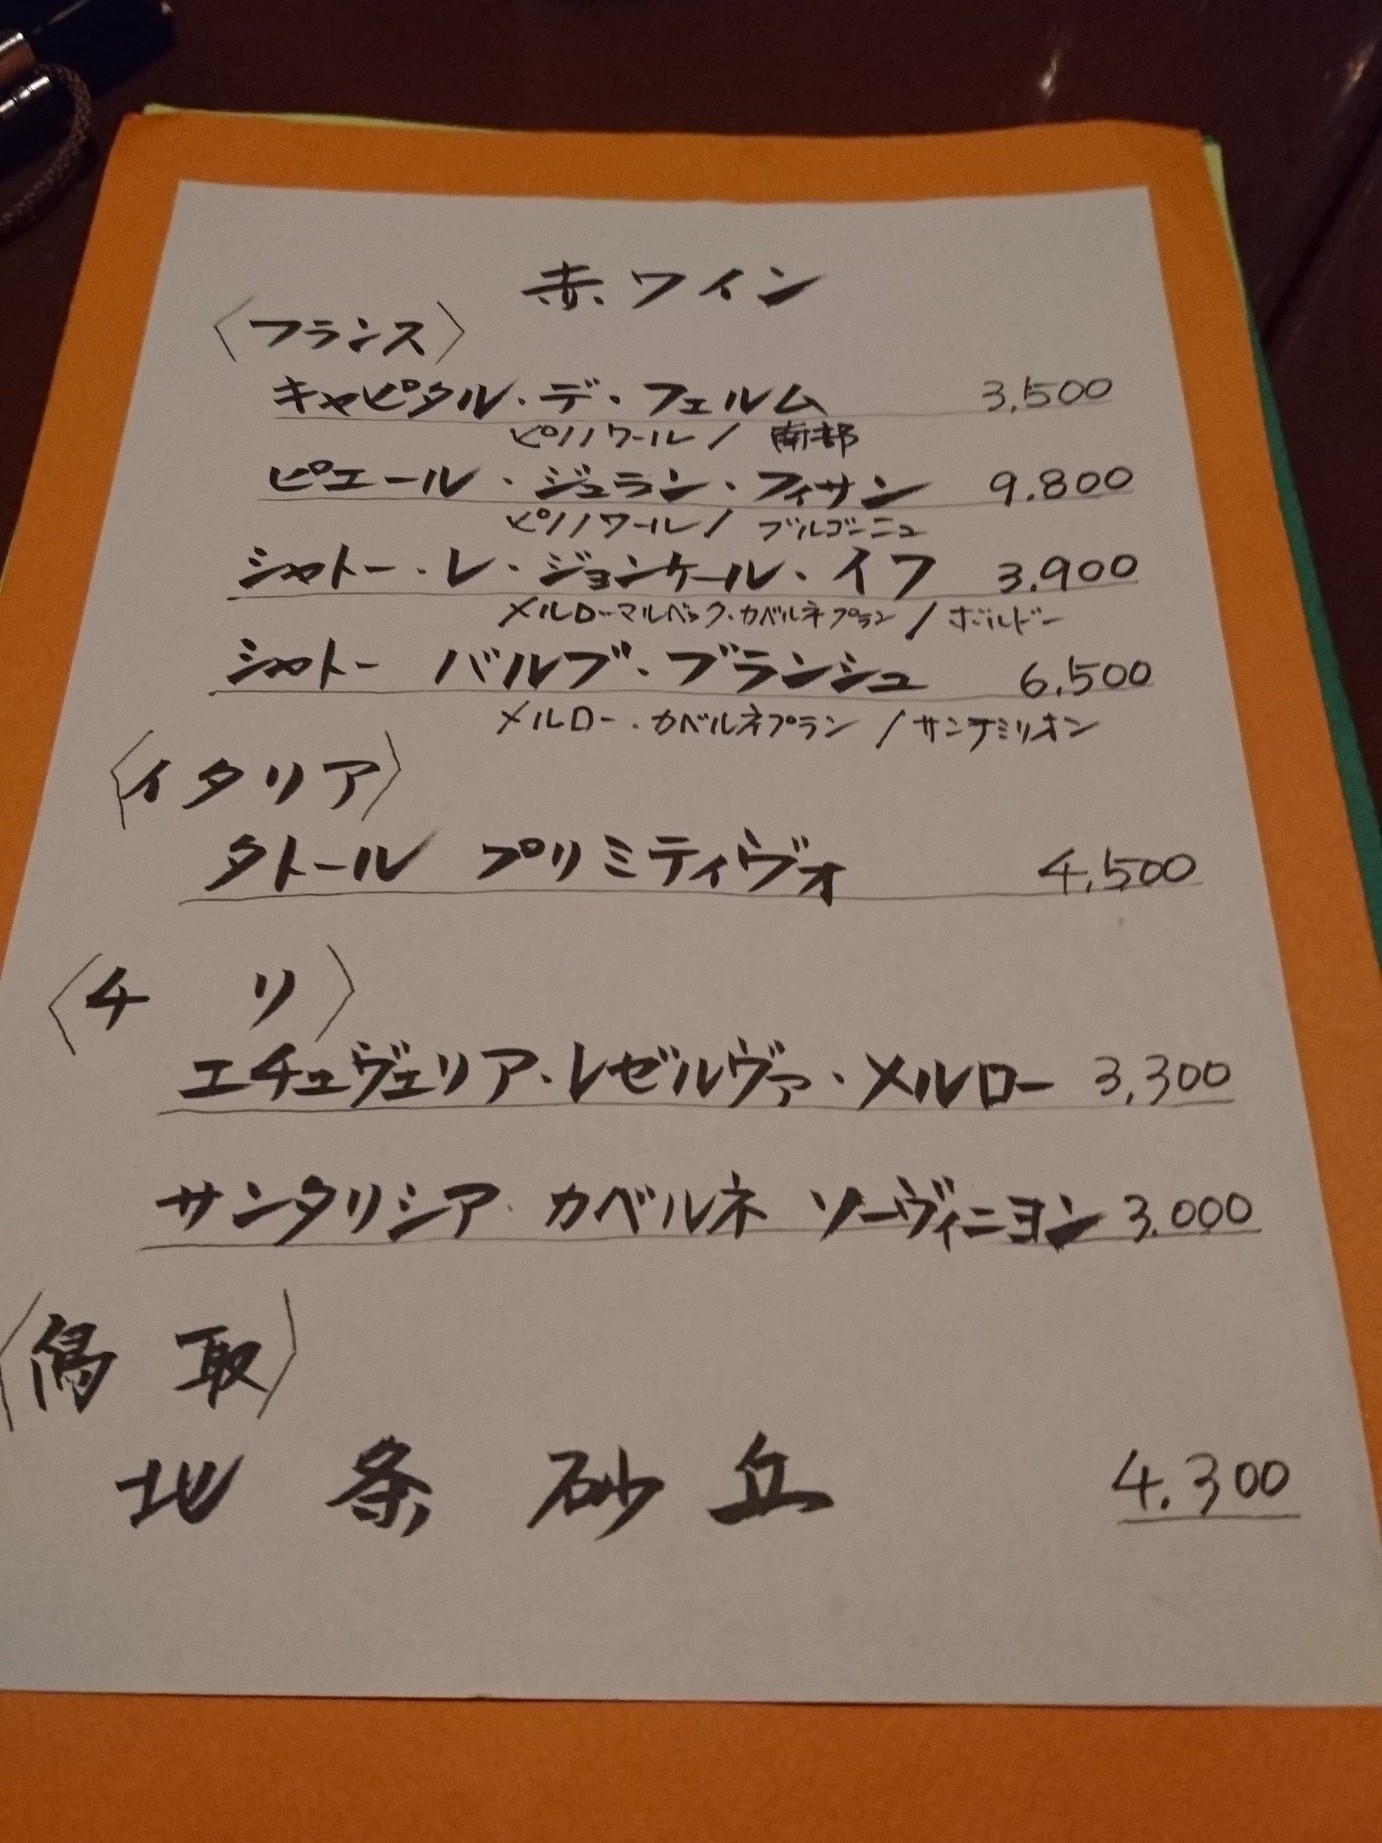 赤ワイン
〈フランス〉
キャピタル・デ・フェルム 3,500
ピノノワール/南部
ピエール・ジュラン・フィサン 9.800
ピノノワール/ブルゴーニュ
シャトー・レ・ジョンケール・イフ 3.900
メルローマルベック・カベルネフラン/ボルドー
シャトー バルブ・ブランシュ 6,500
メルロー・カベルネプラン/サンテミリオン
〈イタリア〉
タトール プリミティヴォ 4,500
〈チリ〉
エチェヴェリア・レゼルヴァ・メルロー 3,300
サンタリシア・カベルネ ソーヴィニヨン 3.000
〈鳥取〉
北条砂丘 4.300